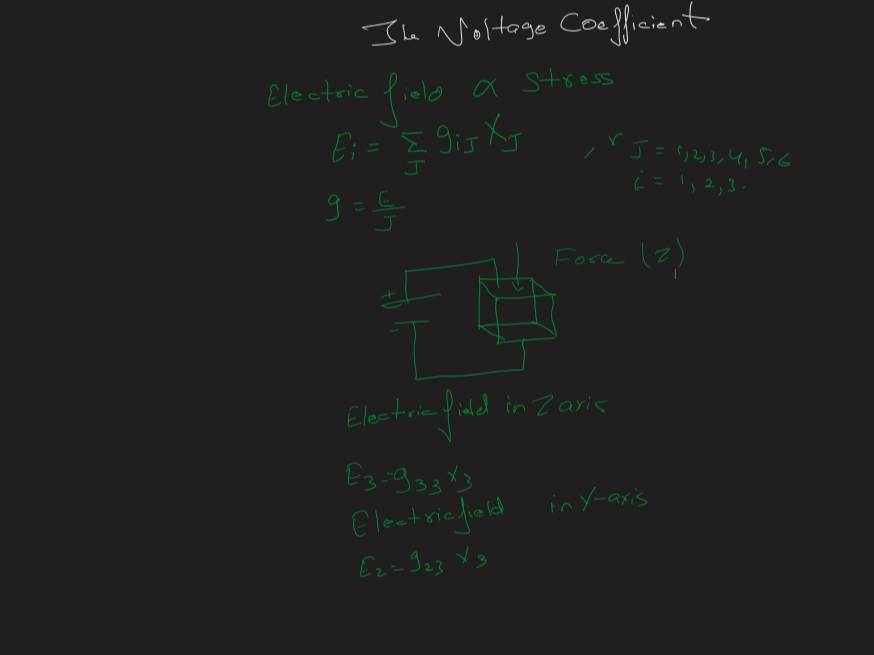 The Voltage Coefficient
Electric field α Stress
Ei = Σ giJ XJ
J
, r J = 1,2,3,4,5,6
i = 1,2,3.
g = E/J
Force (Z)
+
-
Electric field in Z axis
E3 = g33 x3
Electric field in Y-axis
E2 = g23 x3